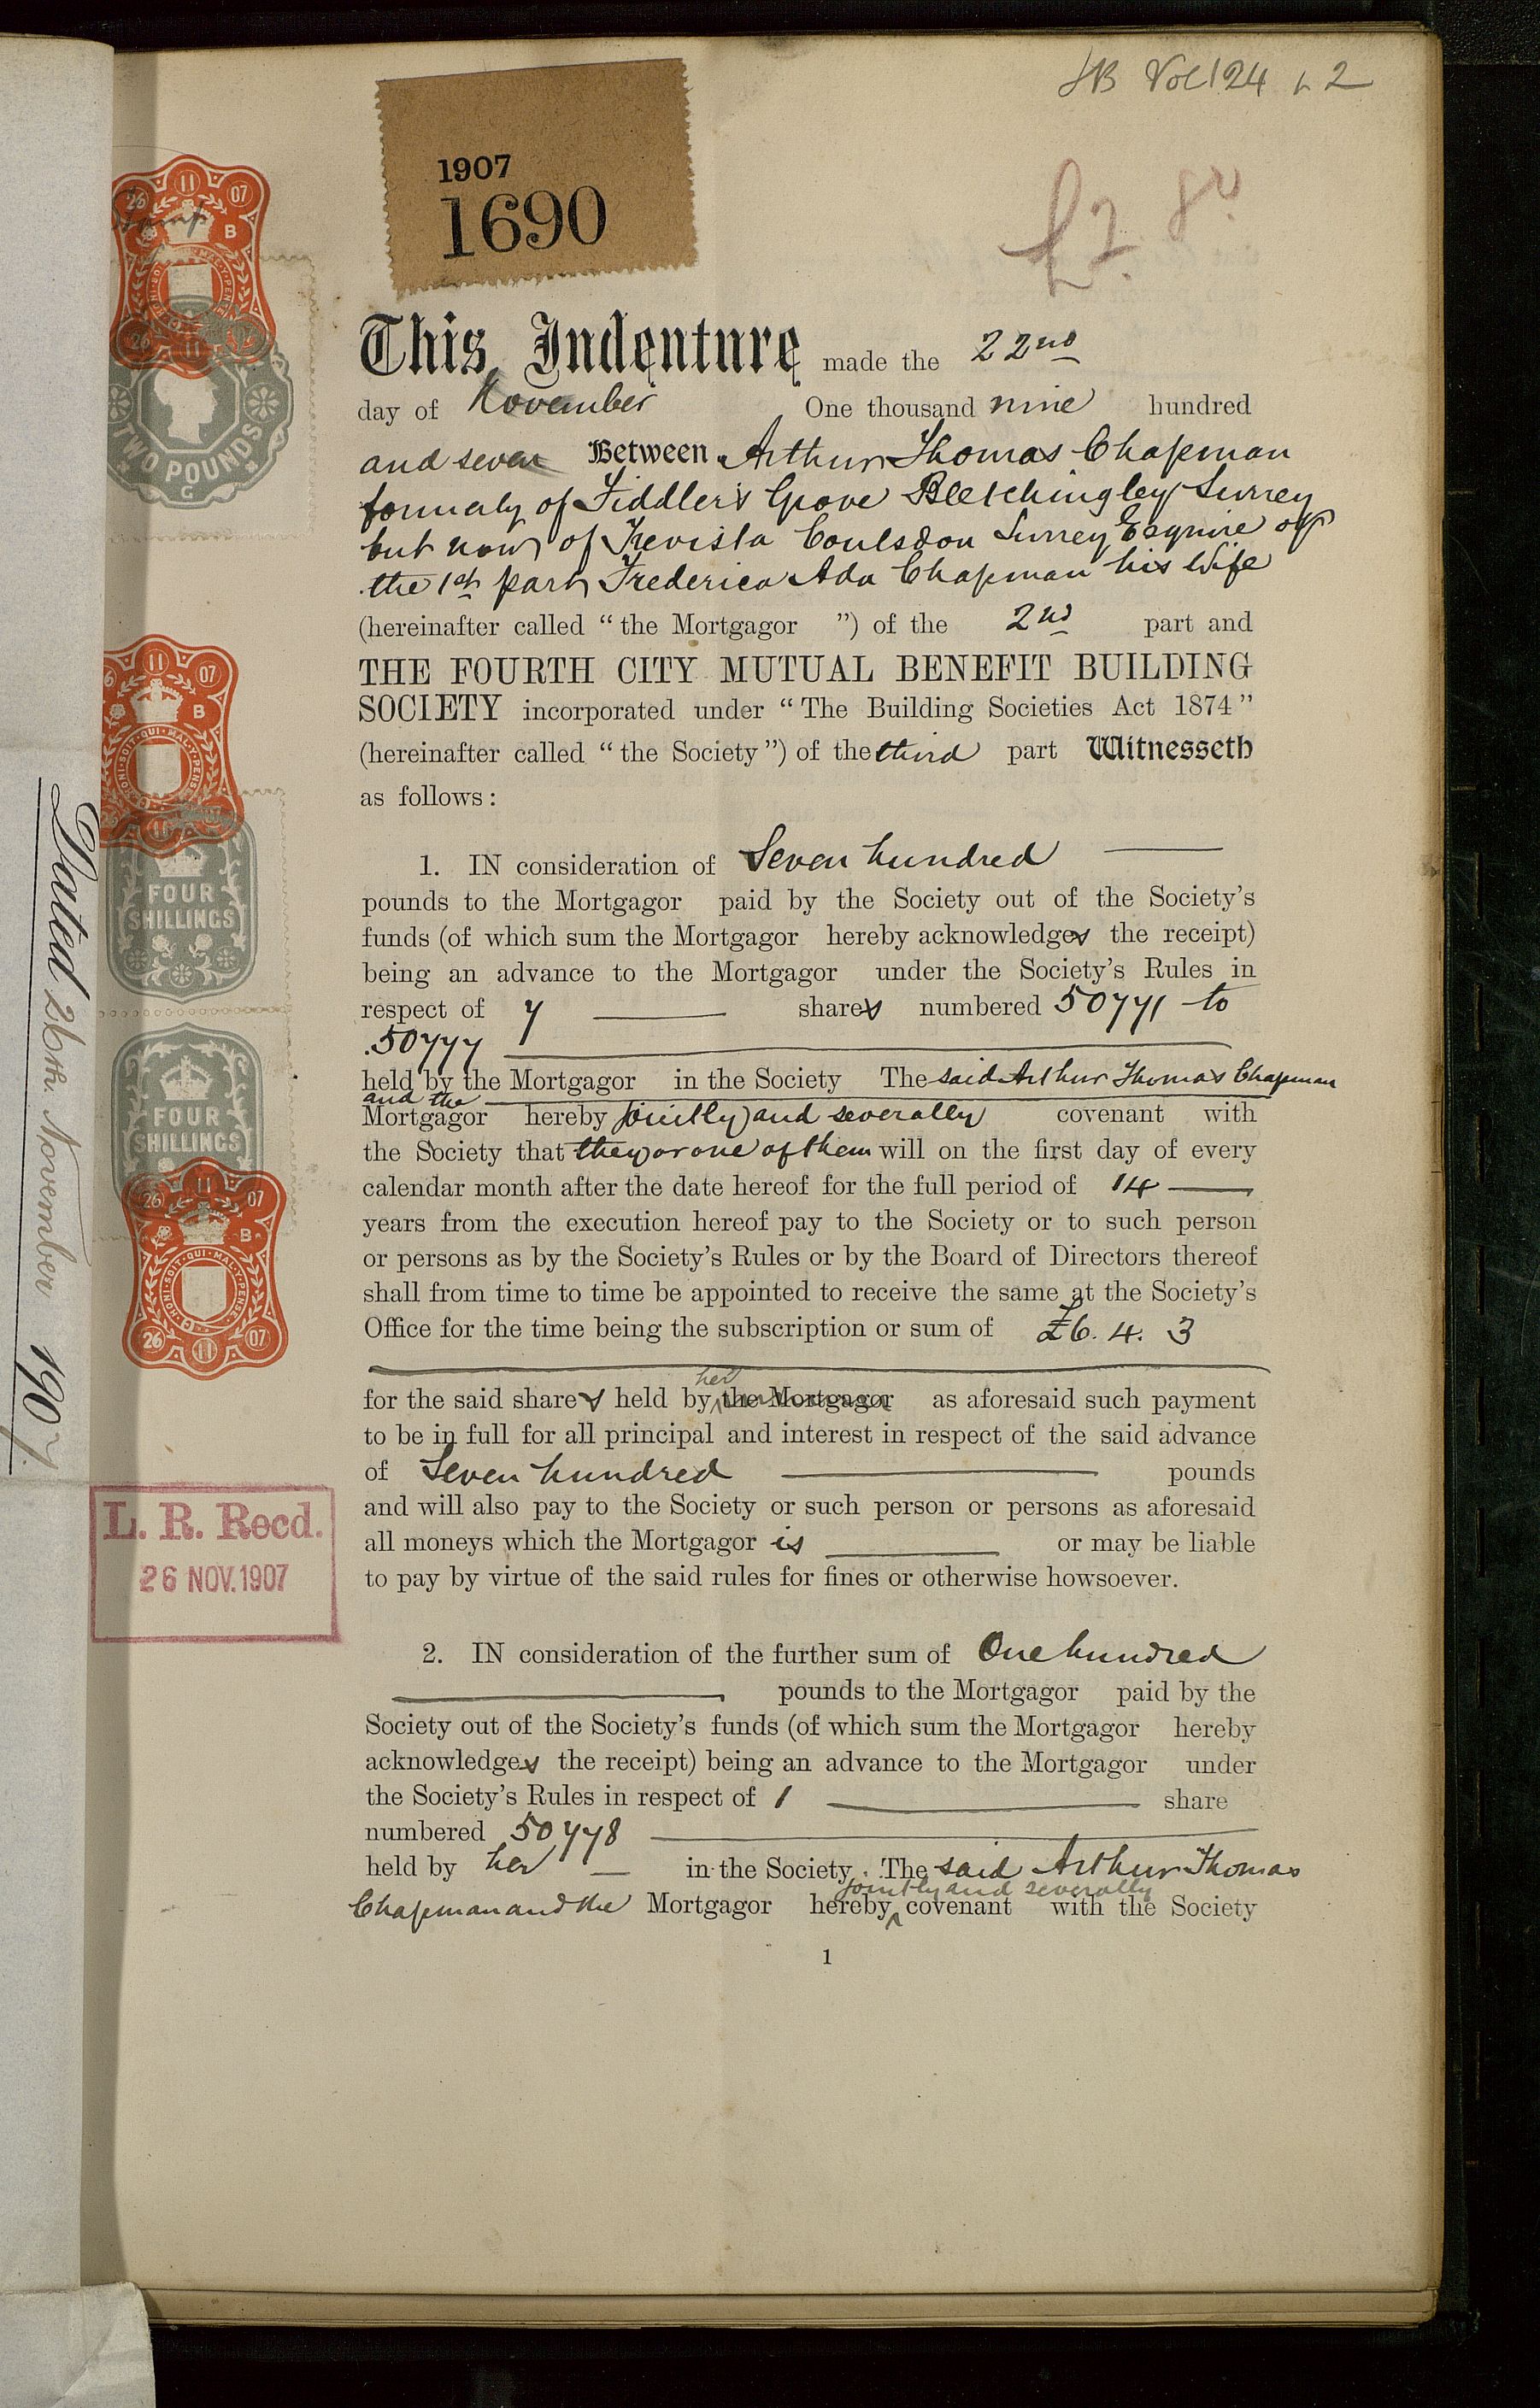 JB Vol 124 p 2
1907
1690
£2. 8s
This Indenture made the 22nd
day of November One thousand nine hundred
and seven Between Arthur Thomas Chapman
formerly of Fiddler's Grove Bletchingley Surrey
but now of Trevista Coulsdon Surrey Esquire of
the 1st part Frederica Ada Chapman his Wife
(hereinafter called “the Mortgagor ”) of the 2nd part and
THE FOURTH CITY MUTUAL BENEFIT BUILDING
SOCIETY incorporated under “The Building Societies Act 1874”
(hereinafter called “the Society”) of the third part Witnesseth
as follows:
1. IN consideration of Seven hundred
pounds to the Mortgagor paid by the Society out of the Society's
funds (of which sum the Mortgagor hereby acknowledges the receipt)
being an advance to the Mortgagor under the Society's Rules in
respect of 7 shares numbered 50771 to
50777
held by the Mortgagor in the Society The said Arthur Thomas Chapman
and the
Mortgagor hereby jointly and severally covenant with
the Society that they or one of them will on the first day of every
calendar month after the date hereof for the full period of 14
years from the execution hereof pay to the Society or to such person
or persons as by the Society's Rules or by the Board of Directors thereof
shall from time to time be appointed to receive the same at the Society's
Office for the time being the subscription or sum of £6. 4. 3
her
for the said shares held by the Mortgagor as aforesaid such payment
to be in full for all principal and interest in respect of the said advance
of Seven hundred pounds
and will also pay to the Society or such person or persons as aforesaid
all moneys which the Mortgagor is or may be liable
to pay by virtue of the said rules for fines or otherwise howsoever.
2. IN consideration of the further sum of One hundred
pounds to the Mortgagor paid by the
Society out of the Society's funds (of which sum the Mortgagor hereby
acknowledges the receipt) being an advance to the Mortgagor under
the Society's Rules in respect of 1 share
numbered 50778
held by her in the Society. The said Arthur Thomas
jointly and severally
Chapman and the Mortgagor hereby covenant with the Society
1
26 11 07
B
26 11
TWO POUNDS
G
11 07
B
HONI·SOIT·QUI·MAL·Y·PENSE
11 07
FOUR
SHILLINGS
FOUR
SHILLINGS
26 11 07
B
HONI·SOIT·QUI·MAL·Y·PENSE
26 11 07
L. R. Recd.
26 NOV. 1907
Dated 26th November 1907.